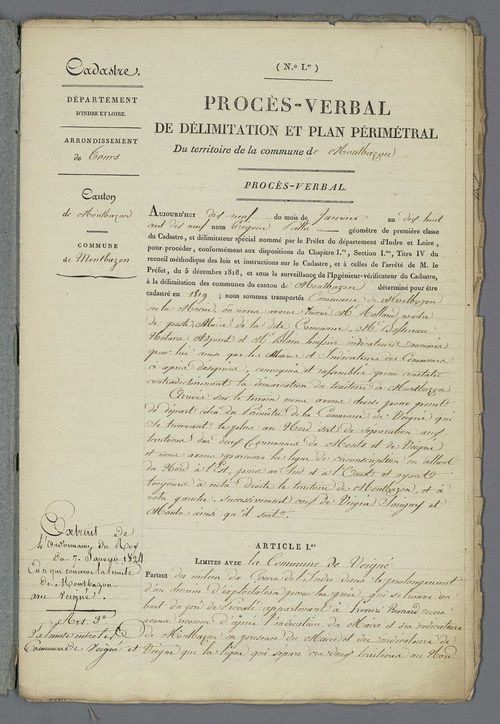 Cadastre.
DÉPARTEMENT
D'INDRE ET LOIRE.
ARRONDISSEMENT
de Tours
Canton
de Montbazon
COMMUNE
de Montbazon
( N.o I.er )
PROCÈS-VERBAL
DE DÉLIMITATION ET PLAN PÉRIMÉTRAL
Du territoire de la commune de Montbazon
PROCÈS-VERBAL.
AUJOURD'HUI dix neuf du mois de Janvier an dix huit
cent dix neuf nous géomètre de première classe
du Cadastre, et délimitateur spécial nommé par le Préfet du département d'Indre et Loire,
pour procéder, conformément aux dispositions du Chapitre I.er, Section I.ère, Titre IV du
recueil méthodique des lois et instructions sur le Cadastre, et à celles de l'arrêté de M. le
Préfet, du 5 décembre 1818, et sous la surveillance de l'Ingénieur-vérificateur du Cadastre,
à la délimitation des communes du canton de Montbazon déterminé pour être
cadastré en 1819 ; nous sommes transportés Commune de Montbazon
en la Mairie, où nous avons trouvé M. maitre
de poste, Maire de la dite Commune, M.
Notaire Adjoint et M. indicateurs nommés
pour lui ainsi que les Maires et Indicateurs des Communes
ci après désignées, convoqués et rassemblés pour constater
contradictoirement la démarcation du territoire de Montbazon
Arrivé sur le terrain nous avons choisi pour point
de départ celui du Périmètre de la Commune de Veigné qui
se trouvant le plus au Nord sert de séparation aux
territoires des deux Communes de Monts et de Veigné
et nous avons parcouru la ligne de circonscription en allant
du Nord à l'Est, puis au Sud et à l'Ouest et ayant
toujours à notre droite le territoire de Montbazon, et à
notre gauche, successivement ceux de Veigné Sorigny et
Monts ainsi qu'il suit.
ARTICLE I.er
LIMITES AVEC la Commune de Veigné
Partant du milieu du Cours de l'Indre dans le prolongement
d'un chemin d'exploitation pour les prés, qui se trouve en
haut du pré de appartenant à Bernard nous
avons reconnu d'après l'indication du Maire et des indicateurs
de Montbazon en présence du Maire et des indicateurs de
Veigné que la ligne qui sépare ces deux territoires au Nord
Extrait de
l'ordonnance du Roy
du 7 Janvier 1824
En ce qui concerne la limite
de Montbazon
avec Veigné.
Art. 3e
La limite entre la
Commune de Veigné et